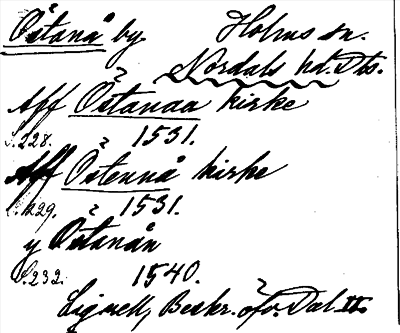 Östanå by Holms sn.
Nordals hd. Dls.
Aff Östanaa kirke
S. 228. 1531.
Aff Östennå kirke
S. 229. 1531.
y Östanån
S. 232. 1540.
Lignell, Beskr. öfv. Dal II.